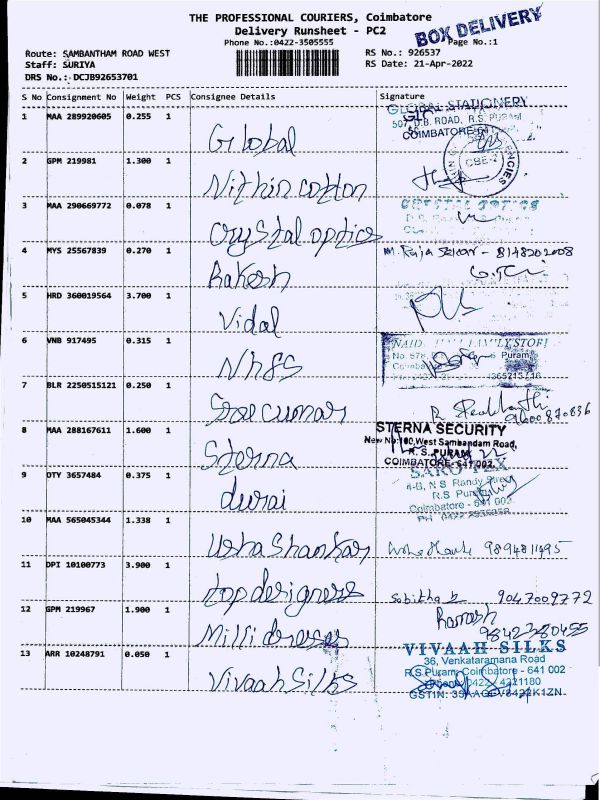 THE PROFESSIONAL COURIERS, Coimbatore
Delivery Runsheet - PC2
BOX DELIVERY
Phone No.:0422-3505555
Page No.:1
Route: SAMBANTHAM ROAD WEST
RS No.: 926537
Staff: SURIYA
RS Date: 21-Apr-2022
DRS No.: DCJB92653701
S No Consignment No Weight PCS Consignee Details Signature
1 MAA 289920605 0.255 1 Global
GLOBAL STATIONERY
507, D.B. ROAD, R.S. PURAM
COIMBATORE-641
2 GPM 219981 1.300 1 Nithin cotton
CBE-2
3 MAA 290669772 0.078 1 Crystal optics
CRYSTAL OPTICS
4 MYS 25567839 0.270 1 Rakesh
M. Raja Sekar - 8148202008
5 HRD 360019564 3.700 1 Vidal
6 VNB 917495 0.315 1 Nhss
NAID FAMILY STORE
No. 578, Puram
7 BLR 2250515121 0.250 1
9600870836
8 MAA 288167611 1.600 1 Sterna
STERNA SECURITY
New No:100, West Sambandam Road,
R.S. PURAM
COIMBATORE-641 002
9 DTY 3657484 0.375 1 durai
SAKO TEX
4-B, N S Randy Street
R.S Puram
Coimbatore - 641 002
10 MAA 565045344 1.338 1 Usha Shankar
9894811495
11 DPI 10100773 3.900 1 top designers
Sabitha 9047009772
12 GPM 219967 1.900 1 Milli dresses
Ramesh
9842380455
13 ARR 10248791 0.050 1 Vivaah Silks
VIVAAH SILKS
36, Venkataramana Road
R.S.Puram, Coimbatore - 641 002
Phone: 0422 - 4321180
GSTIN: